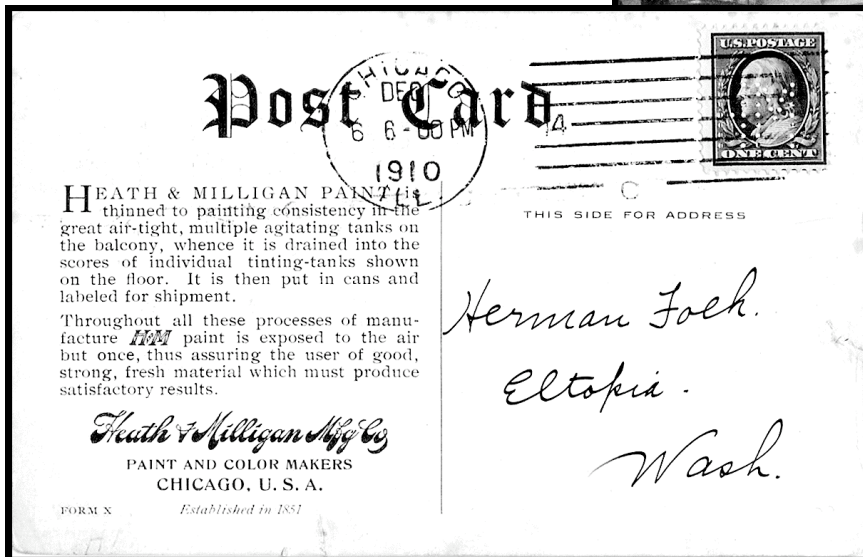 Post Card
CHICAGO
DEC
6 6-00 PM
1910
ILL.
4
C
U.S. POSTAGE
ONE CENT
HEATH & MILLIGAN PAINT is
thinned to painting consistency in the
great air-tight, multiple agitating tanks on
the balcony, whence it is drained into the
scores of individual tinting-tanks shown
on the floor. It is then put in cans and
labeled for shipment.
Throughout all these processes of manu-
facture H&M paint is exposed to the air
but once, thus assuring the user of good,
strong, fresh material which must produce
satisfactory results.
Heath & Milligan Mfg Co
PAINT AND COLOR MAKERS
CHICAGO, U. S. A.
FORM X Established in 1851
THIS SIDE FOR ADDRESS
Herman
Eltopia.
Wash.